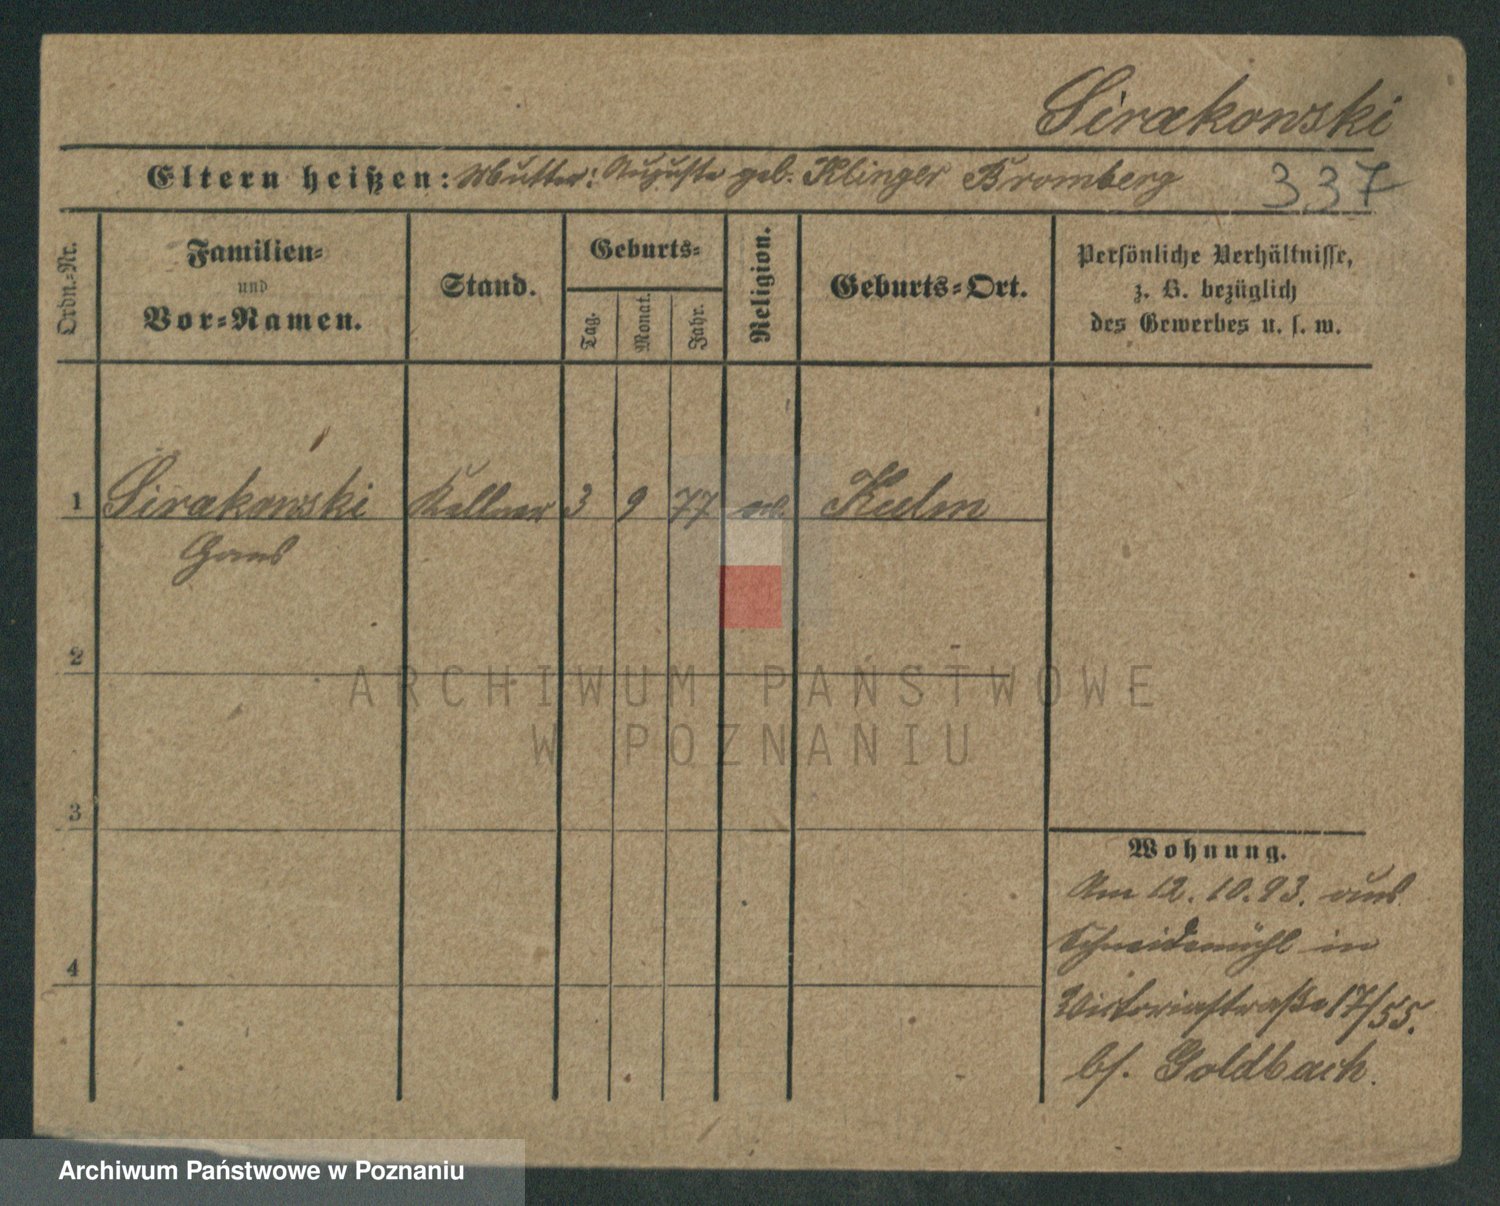 Sirakowski
Eltern heißen: Mutter: Auguste geb. Klinger Bromberg 337
Ordn.-Nr.
Familien-
und
Vor-Namen.
Stand.
Geburts-
Tag.
Monat.
Jahr.
Religion.
Geburts-Ort.
Persönliche Verhältnisse,
z. B. bezüglich
des Gewerbes u. s. w.
1 Sirakowski Kellner 3 9 77 Kulm
Hans
2
3
4
Wohnung.
Am 12.10.93. aus
Schneidemühl in
Victoriastraße 17/55.
bei Goldbach.
ARCHIWUM PAŃSTWOWE
W POZNANIU
Archiwum Państwowe w Poznaniu